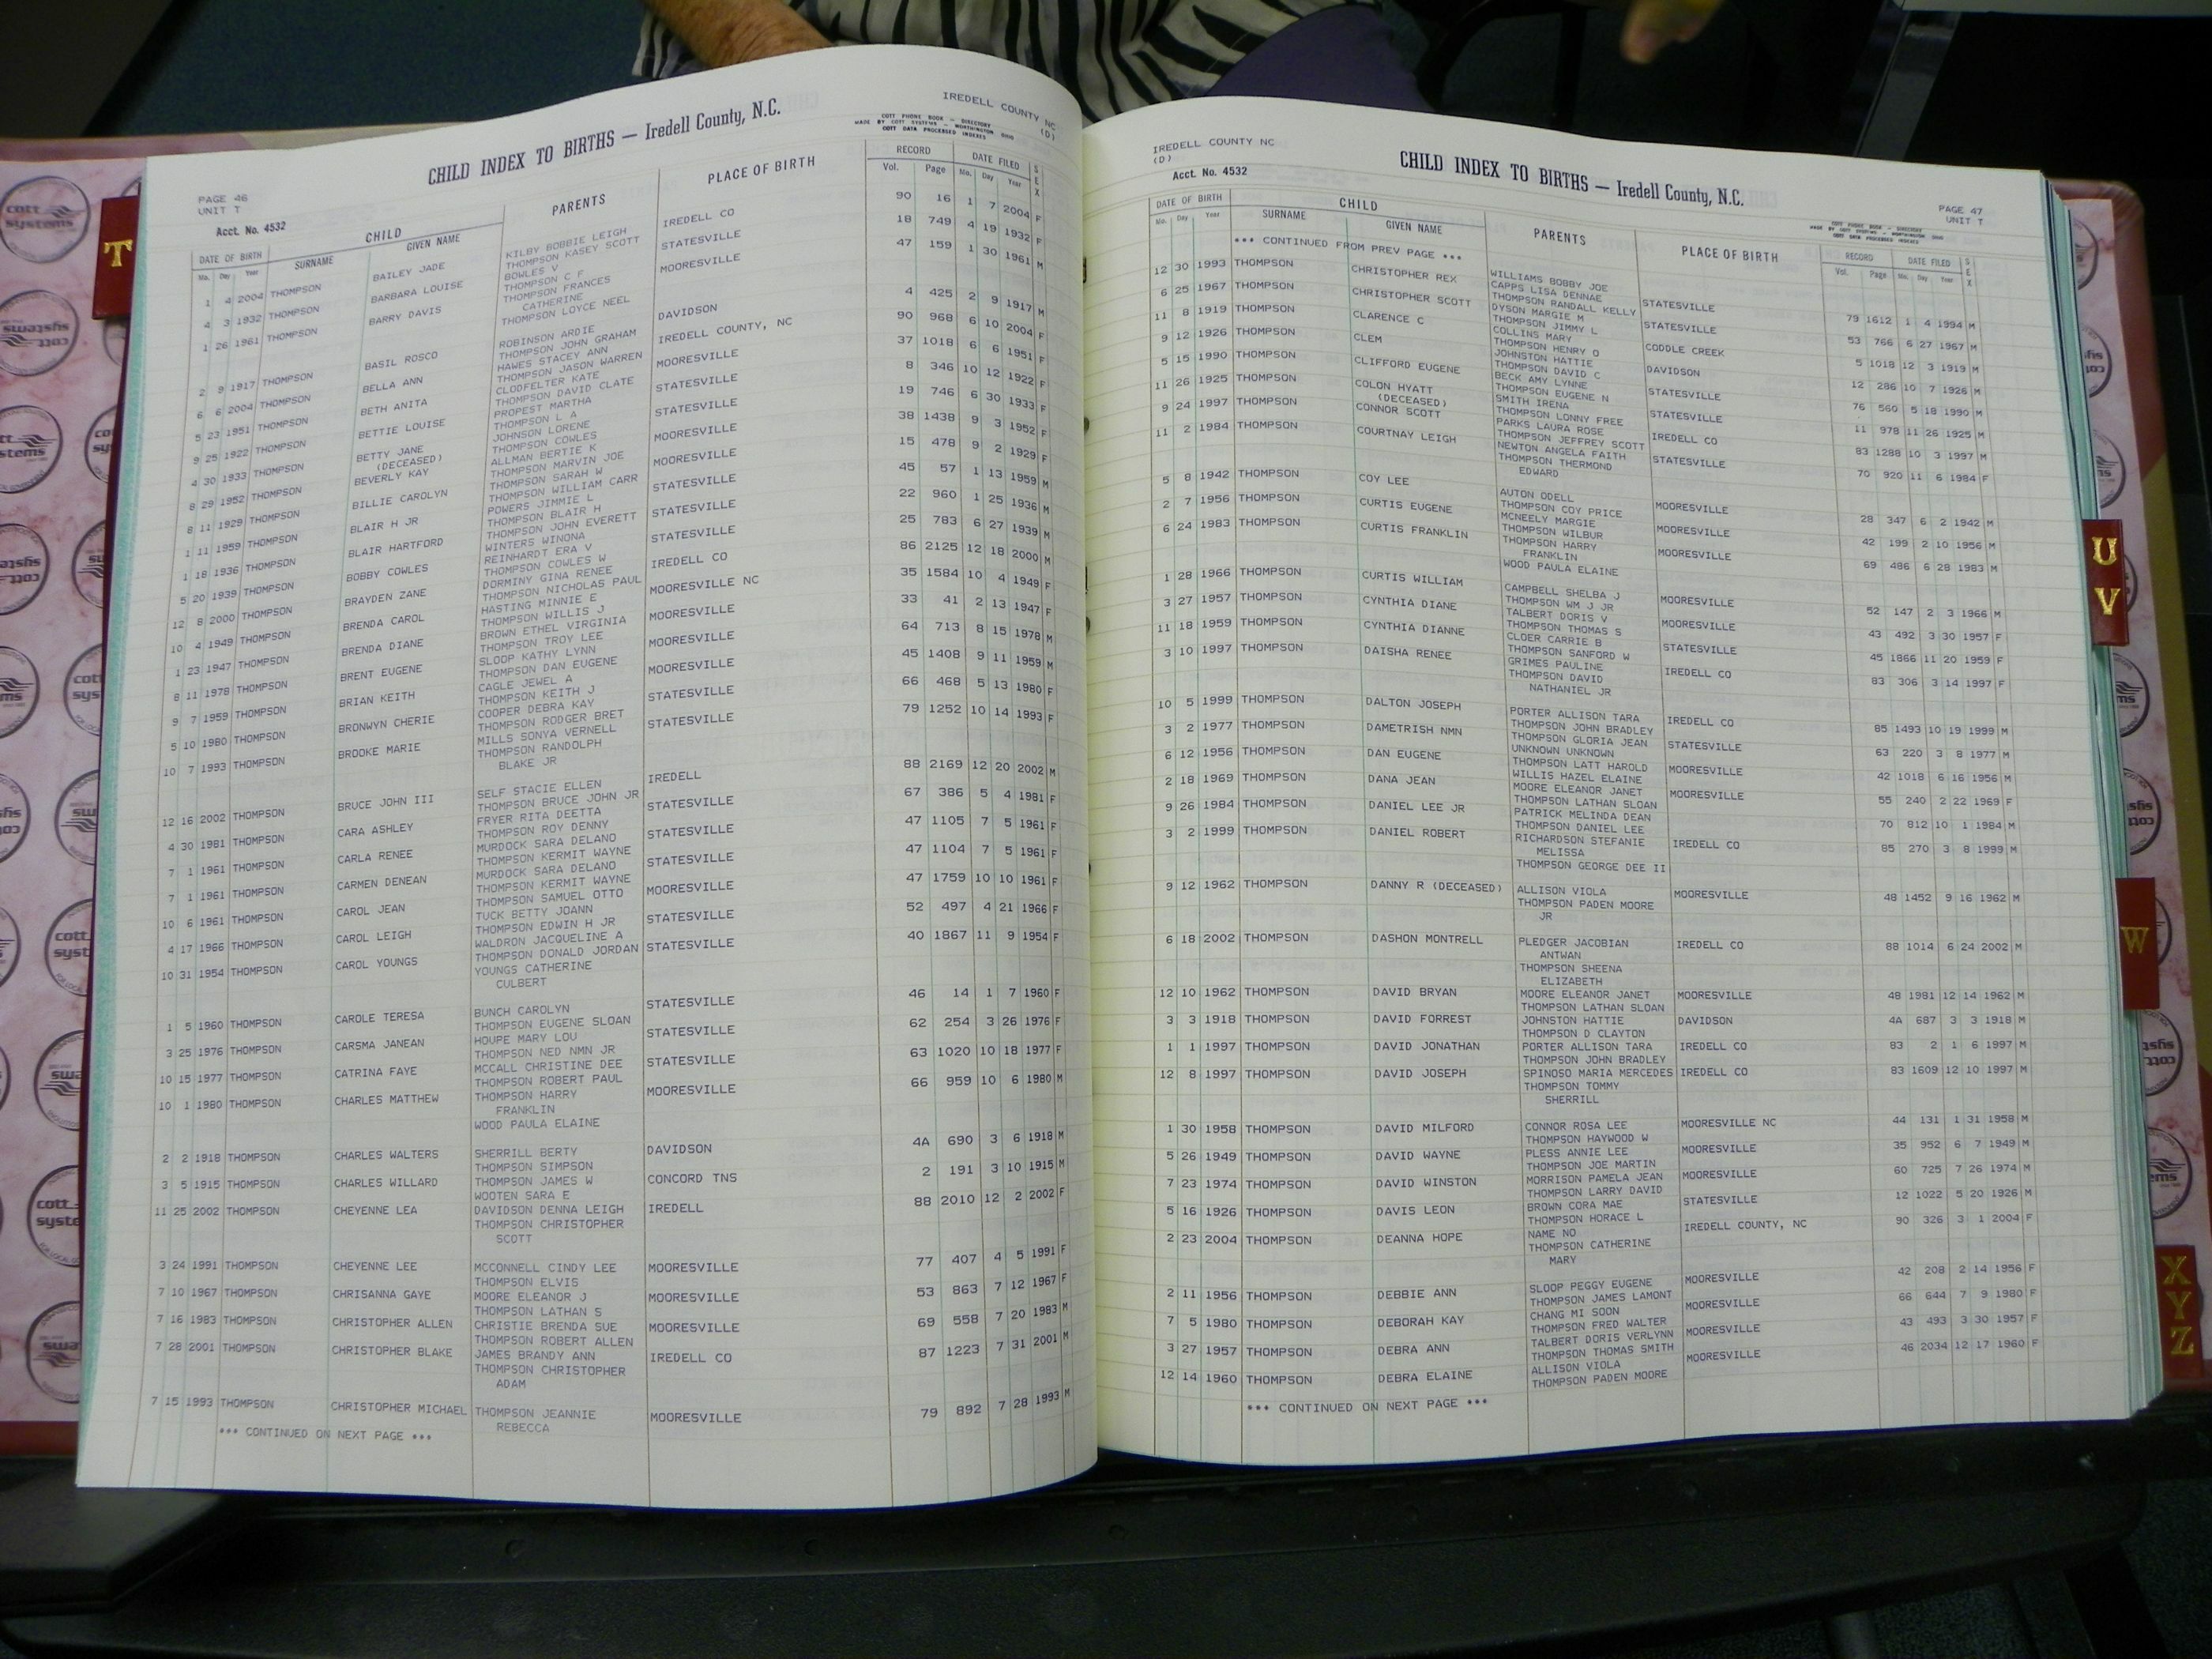 IREDELL COUNTY NC
(D)
CHILD INDEX TO BIRTHS — Iredell County, N.C.
COTT PHONE BOOK - DIRECTORY
MADE BY COTT SYSTEMS - WORTHINGTON OHIO
COTT DATA PROCESSED INDEXES
PAGE 46
UNIT T
Acct. No. 4532
DATE OF BIRTH CHILD PARENTS PLACE OF BIRTH RECORD DATE FILED SEX
Mo. Day Year SURNAME GIVEN NAME Vol. Page Mo. Day Year
1 4 2004 THOMPSON BAILEY JADE KILBY BOBBIE LEIGH IREDELL CO 90 16 1 7 2004 F
THOMPSON KASEY SCOTT
4 3 1932 THOMPSON BARBARA LOUISE BOWLES V STATESVILLE 18 749 4 19 1932 F
THOMPSON C F
1 26 1961 THOMPSON BARRY DAVIS THOMPSON FRANCES MOORESVILLE 47 159 1 30 1961 M
CATHERINE
THOMPSON LOYCE NEEL
2 9 1917 THOMPSON BASIL ROSCO ROBINSON ARDIE DAVIDSON 4 425 2 9 1917 M
THOMPSON JOHN GRAHAM
6 6 2004 THOMPSON BELLA ANN HAWES STACEY ANN IREDELL COUNTY, NC 90 968 6 10 2004 F
THOMPSON JASON WARREN
5 23 1951 THOMPSON BETH ANITA CLODFELTER KATE MOORESVILLE 37 1018 6 6 1951 F
THOMPSON DAVID CLATE
9 25 1922 THOMPSON BETTIE LOUISE PROPEST MARTHA STATESVILLE 8 346 10 12 1922 F
THOMPSON L A
4 30 1933 THOMPSON BETTY JANE JOHNSON LORENE STATESVILLE 19 746 6 30 1933 F
(DECEASED) THOMPSON COWLES
8 29 1952 THOMPSON BEVERLY KAY ALLMAN BERTIE K MOORESVILLE 38 1438 9 3 1952 F
THOMPSON MARVIN JOE
8 11 1929 THOMPSON BILLIE CAROLYN THOMPSON SARAH W MOORESVILLE 15 478 9 2 1929 F
THOMPSON WILLIAM CARR
1 11 1959 THOMPSON BLAIR H JR POWERS JIMMIE L STATESVILLE 45 57 1 13 1959 M
THOMPSON BLAIR H
1 18 1936 THOMPSON BLAIR HARTFORD THOMPSON JOHN EVERETT STATESVILLE 22 960 1 25 1936 M
WINTERS WINONA
5 20 1939 THOMPSON BOBBY COWLES REINHARDT ERA V STATESVILLE 25 783 6 27 1939 M
THOMPSON COWLES W
12 8 2000 THOMPSON BRAYDEN ZANE DORMINY GINA RENEE IREDELL CO 86 2125 12 18 2000 M
THOMPSON NICHOLAS PAUL
10 4 1949 THOMPSON BRENDA CAROL HASTING MINNIE E MOORESVILLE NC 35 1584 10 4 1949 F
THOMPSON WILLIS J
1 23 1947 THOMPSON BRENDA DIANE BROWN ETHEL VIRGINIA MOORESVILLE 33 41 2 13 1947 F
THOMPSON TROY LEE
8 11 1978 THOMPSON BRENT EUGENE SLOOP KATHY LYNN MOORESVILLE 64 713 8 15 1978 M
THOMPSON DAN EUGENE
9 7 1959 THOMPSON BRIAN KEITH CAGLE JEWEL A MOORESVILLE 45 1408 9 11 1959 M
THOMPSON KEITH J
5 10 1980 THOMPSON BRONWYN CHERIE COOPER DEBRA KAY STATESVILLE 66 468 5 13 1980 F
THOMPSON RODGER BRET
10 7 1993 THOMPSON BROOKE MARIE MILLS SONYA VERNELL STATESVILLE 79 1252 10 14 1993 F
THOMPSON RANDOLPH
BLAKE JR
12 16 2002 THOMPSON BRUCE JOHN III SELF STACIE ELLEN IREDELL 88 2169 12 20 2002 M
THOMPSON BRUCE JOHN JR
4 30 1981 THOMPSON CARA ASHLEY FRYER RITA DEETTA STATESVILLE 67 386 5 4 1981 F
THOMPSON ROY DENNY
7 1 1961 THOMPSON CARLA RENEE MURDOCK SARA DELANO STATESVILLE 47 1105 7 5 1961 F
THOMPSON KERMIT WAYNE
7 1 1961 THOMPSON CARMEN DENEAN MURDOCK SARA DELANO STATESVILLE 47 1104 7 5 1961 F
THOMPSON KERMIT WAYNE
10 6 1961 THOMPSON CAROL JEAN THOMPSON SAMUEL OTTO MOORESVILLE 47 1759 10 10 1961 F
TUCK BETTY JOANN
4 17 1966 THOMPSON CAROL LEIGH THOMPSON EDWIN H JR STATESVILLE 52 497 4 21 1966 F
WALDRON JACQUELINE A
10 31 1954 THOMPSON CAROL YOUNGS THOMPSON DONALD JORDAN STATESVILLE 40 1867 11 9 1954 F
YOUNGS CATHERINE
CULBERT
1 5 1960 THOMPSON CAROLE TERESA BUNCH CAROLYN STATESVILLE 46 14 1 7 1960 F
THOMPSON EUGENE SLOAN
3 25 1976 THOMPSON CARSMA JANEAN HOUPE MARY LOU STATESVILLE 62 254 3 26 1976 F
THOMPSON NED NMN JR
10 15 1977 THOMPSON CATRINA FAYE MCCALL CHRISTINE DEE STATESVILLE 63 1020 10 18 1977 F
THOMPSON ROBERT PAUL
10 1 1980 THOMPSON CHARLES MATTHEW THOMPSON HARRY MOORESVILLE 66 959 10 6 1980 M
FRANKLIN
WOOD PAULA ELAINE
2 2 1918 THOMPSON CHARLES WALTERS SHERRILL BERTY DAVIDSON 4A 690 3 6 1918 M
THOMPSON SIMPSON
3 5 1915 THOMPSON CHARLES WILLARD THOMPSON JAMES W CONCORD TNS 2 191 3 10 1915 M
WOOTEN SARA E
11 25 2002 THOMPSON CHEYENNE LEA DAVIDSON DENNA LEIGH IREDELL 88 2010 12 2 2002 F
THOMPSON CHRISTOPHER
SCOTT
3 24 1991 THOMPSON CHEYENNE LEE MCCONNELL CINDY LEE MOORESVILLE 77 407 4 5 1991 F
THOMPSON ELVIS
7 10 1967 THOMPSON CHRISANNA GAYE MOORE ELEANOR J MOORESVILLE 53 863 7 12 1967 F
THOMPSON LATHAN S
7 16 1983 THOMPSON CHRISTOPHER ALLEN CHRISTIE BRENDA SUE MOORESVILLE 69 558 7 20 1983 M
THOMPSON ROBERT ALLEN
7 28 2001 THOMPSON CHRISTOPHER BLAKE JAMES BRANDY ANN IREDELL CO 87 1223 7 31 2001 M
THOMPSON CHRISTOPHER
ADAM
7 15 1993 THOMPSON CHRISTOPHER MICHAEL THOMPSON JEANNIE MOORESVILLE 79 892 7 28 1993 M
REBECCA
*** CONTINUED ON NEXT PAGE ***
IREDELL COUNTY NC
(D)
Acct. No. 4532
CHILD INDEX TO BIRTHS — Iredell County, N.C.
PAGE 47
UNIT T
COTT PHONE BOOK - DIRECTORY
MADE BY COTT SYSTEMS - WORTHINGTON OHIO
COTT DATA PROCESSED INDEXES
DATE OF BIRTH CHILD PARENTS PLACE OF BIRTH RECORD DATE FILED SEX
Mo. Day Year SURNAME GIVEN NAME Vol. Page Mo. Day Year
*** CONTINUED FROM PREV PAGE ***
WILLIAMS BOBBY JOE
12 30 1993 THOMPSON CHRISTOPHER REX CAPPS LISA DENNAE STATESVILLE 79 1612 1 4 1994 M
THOMPSON RANDALL KELLY
6 25 1967 THOMPSON CHRISTOPHER SCOTT DYSON MARGIE M STATESVILLE 53 766 6 27 1967 M
THOMPSON JIMMY L
11 8 1919 THOMPSON CLARENCE C COLLINS MARY CODDLE CREEK 5 1018 12 3 1919 M
THOMPSON HENRY O
9 12 1926 THOMPSON CLEM JOHNSTON HATTIE DAVIDSON 12 286 10 7 1926 M
THOMPSON DAVID C
5 15 1990 THOMPSON CLIFFORD EUGENE BECK AMY LYNNE STATESVILLE 76 560 5 18 1990 M
THOMPSON EUGENE N
11 26 1925 THOMPSON COLON HYATT SMITH IRENA STATESVILLE 11 978 11 26 1925 M
(DECEASED) THOMPSON LONNY FREE
9 24 1997 THOMPSON CONNOR SCOTT PARKS LAURA ROSE IREDELL CO 83 1288 10 3 1997 M
THOMPSON JEFFREY SCOTT
11 2 1984 THOMPSON COURTNAY LEIGH NEWTON ANGELA FAITH STATESVILLE 70 920 11 6 1984 F
THOMPSON THERMOND
EDWARD
5 8 1942 THOMPSON COY LEE AUTON ODELL MOORESVILLE 28 347 6 2 1942 M
THOMPSON COY PRICE
2 7 1956 THOMPSON CURTIS EUGENE MCNEELY MARGIE MOORESVILLE 42 199 2 10 1956 M
THOMPSON WILBUR
6 24 1983 THOMPSON CURTIS FRANKLIN THOMPSON HARRY MOORESVILLE 69 486 6 28 1983 M
FRANKLIN
WOOD PAULA ELAINE
1 28 1966 THOMPSON CURTIS WILLIAM CAMPBELL SHELBA J MOORESVILLE 52 147 2 3 1966 M
THOMPSON WM J JR
3 27 1957 THOMPSON CYNTHIA DIANE TALBERT DORIS V MOORESVILLE 43 492 3 30 1957 F
THOMPSON THOMAS S
11 18 1959 THOMPSON CYNTHIA DIANNE CLOER CARRIE B STATESVILLE 45 1866 11 20 1959 F
THOMPSON SANFORD W
3 10 1997 THOMPSON DAISHA RENEE GRIMES PAULINE IREDELL CO 83 306 3 14 1997 F
THOMPSON DAVID
NATHANIEL JR
10 5 1999 THOMPSON DALTON JOSEPH PORTER ALLISON TARA IREDELL CO 85 1493 10 19 1999 M
THOMPSON JOHN BRADLEY
3 2 1977 THOMPSON DAMETRISH NMN THOMPSON GLORIA JEAN STATESVILLE 63 220 3 8 1977 M
UNKNOWN UNKNOWN
6 12 1956 THOMPSON DAN EUGENE THOMPSON LATT HAROLD MOORESVILLE 42 1018 6 16 1956 M
WILLIS HAZEL ELAINE
2 18 1969 THOMPSON DANA JEAN MOORE ELEANOR JANET MOORESVILLE 55 240 2 22 1969 F
THOMPSON LATHAN SLOAN
9 26 1984 THOMPSON DANIEL LEE JR PATRICK MELINDA DEAN 70 812 10 1 1984 M
THOMPSON DANIEL LEE
3 2 1999 THOMPSON DANIEL ROBERT RICHARDSON STEFANIE IREDELL CO 85 270 3 8 1999 M
MELISSA
THOMPSON GEORGE DEE II
9 12 1962 THOMPSON DANNY R (DECEASED) ALLISON VIOLA MOORESVILLE 48 1452 9 16 1962 M
THOMPSON PADEN MOORE
JR
6 18 2002 THOMPSON DASHON MONTRELL PLEDGER JACOBIAN IREDELL CO 88 1014 6 24 2002 M
ANTWAN
THOMPSON SHEENA
ELIZABETH
12 10 1962 THOMPSON DAVID BRYAN MOORE ELEANOR JANET MOORESVILLE 48 1981 12 14 1962 M
THOMPSON LATHAN SLOAN
3 3 1918 THOMPSON DAVID FORREST JOHNSTON HATTIE DAVIDSON 4A 687 3 3 1918 M
THOMPSON D CLAYTON
1 1 1997 THOMPSON DAVID JONATHAN PORTER ALLISON TARA IREDELL CO 83 2 1 6 1997 M
THOMPSON JOHN BRADLEY
12 8 1997 THOMPSON DAVID JOSEPH SPINOSO MARIA MERCEDES IREDELL CO 83 1609 12 10 1997 M
THOMPSON TOMMY
SHERRILL
1 30 1958 THOMPSON DAVID MILFORD CONNOR ROSA LEE MOORESVILLE NC 44 131 1 31 1958 M
THOMPSON HAYWOOD W
5 26 1949 THOMPSON DAVID WAYNE PLESS ANNIE LEE MOORESVILLE 35 952 6 7 1949 M
THOMPSON JOE MARTIN
7 23 1974 THOMPSON DAVID WINSTON MORRISON PAMELA JEAN MOORESVILLE 60 725 7 26 1974 M
THOMPSON LARRY DAVID
5 16 1926 THOMPSON DAVIS LEON BROWN CORA MAE STATESVILLE 12 1022 5 20 1926 M
THOMPSON HORACE L
2 23 2004 THOMPSON DEANNA HOPE NAME NO IREDELL COUNTY, NC 90 326 3 1 2004 F
THOMPSON CATHERINE
MARY
2 11 1956 THOMPSON DEBBIE ANN SLOOP PEGGY EUGENE MOORESVILLE 42 208 2 14 1956 F
THOMPSON JAMES LAMONT
7 5 1980 THOMPSON DEBORAH KAY CHANG MI SOON MOORESVILLE 66 644 7 9 1980 F
THOMPSON FRED WALTER
3 27 1957 THOMPSON DEBRA ANN TALBERT DORIS VERLYNN MOORESVILLE 43 493 3 30 1957 F
THOMPSON THOMAS SMITH
12 14 1960 THOMPSON DEBRA ELAINE ALLISON VIOLA MOORESVILLE 46 2034 12 17 1960 F
THOMPSON PADEN MOORE
*** CONTINUED ON NEXT PAGE ***
T
U
V
W
X
Y
Z
cott
systems